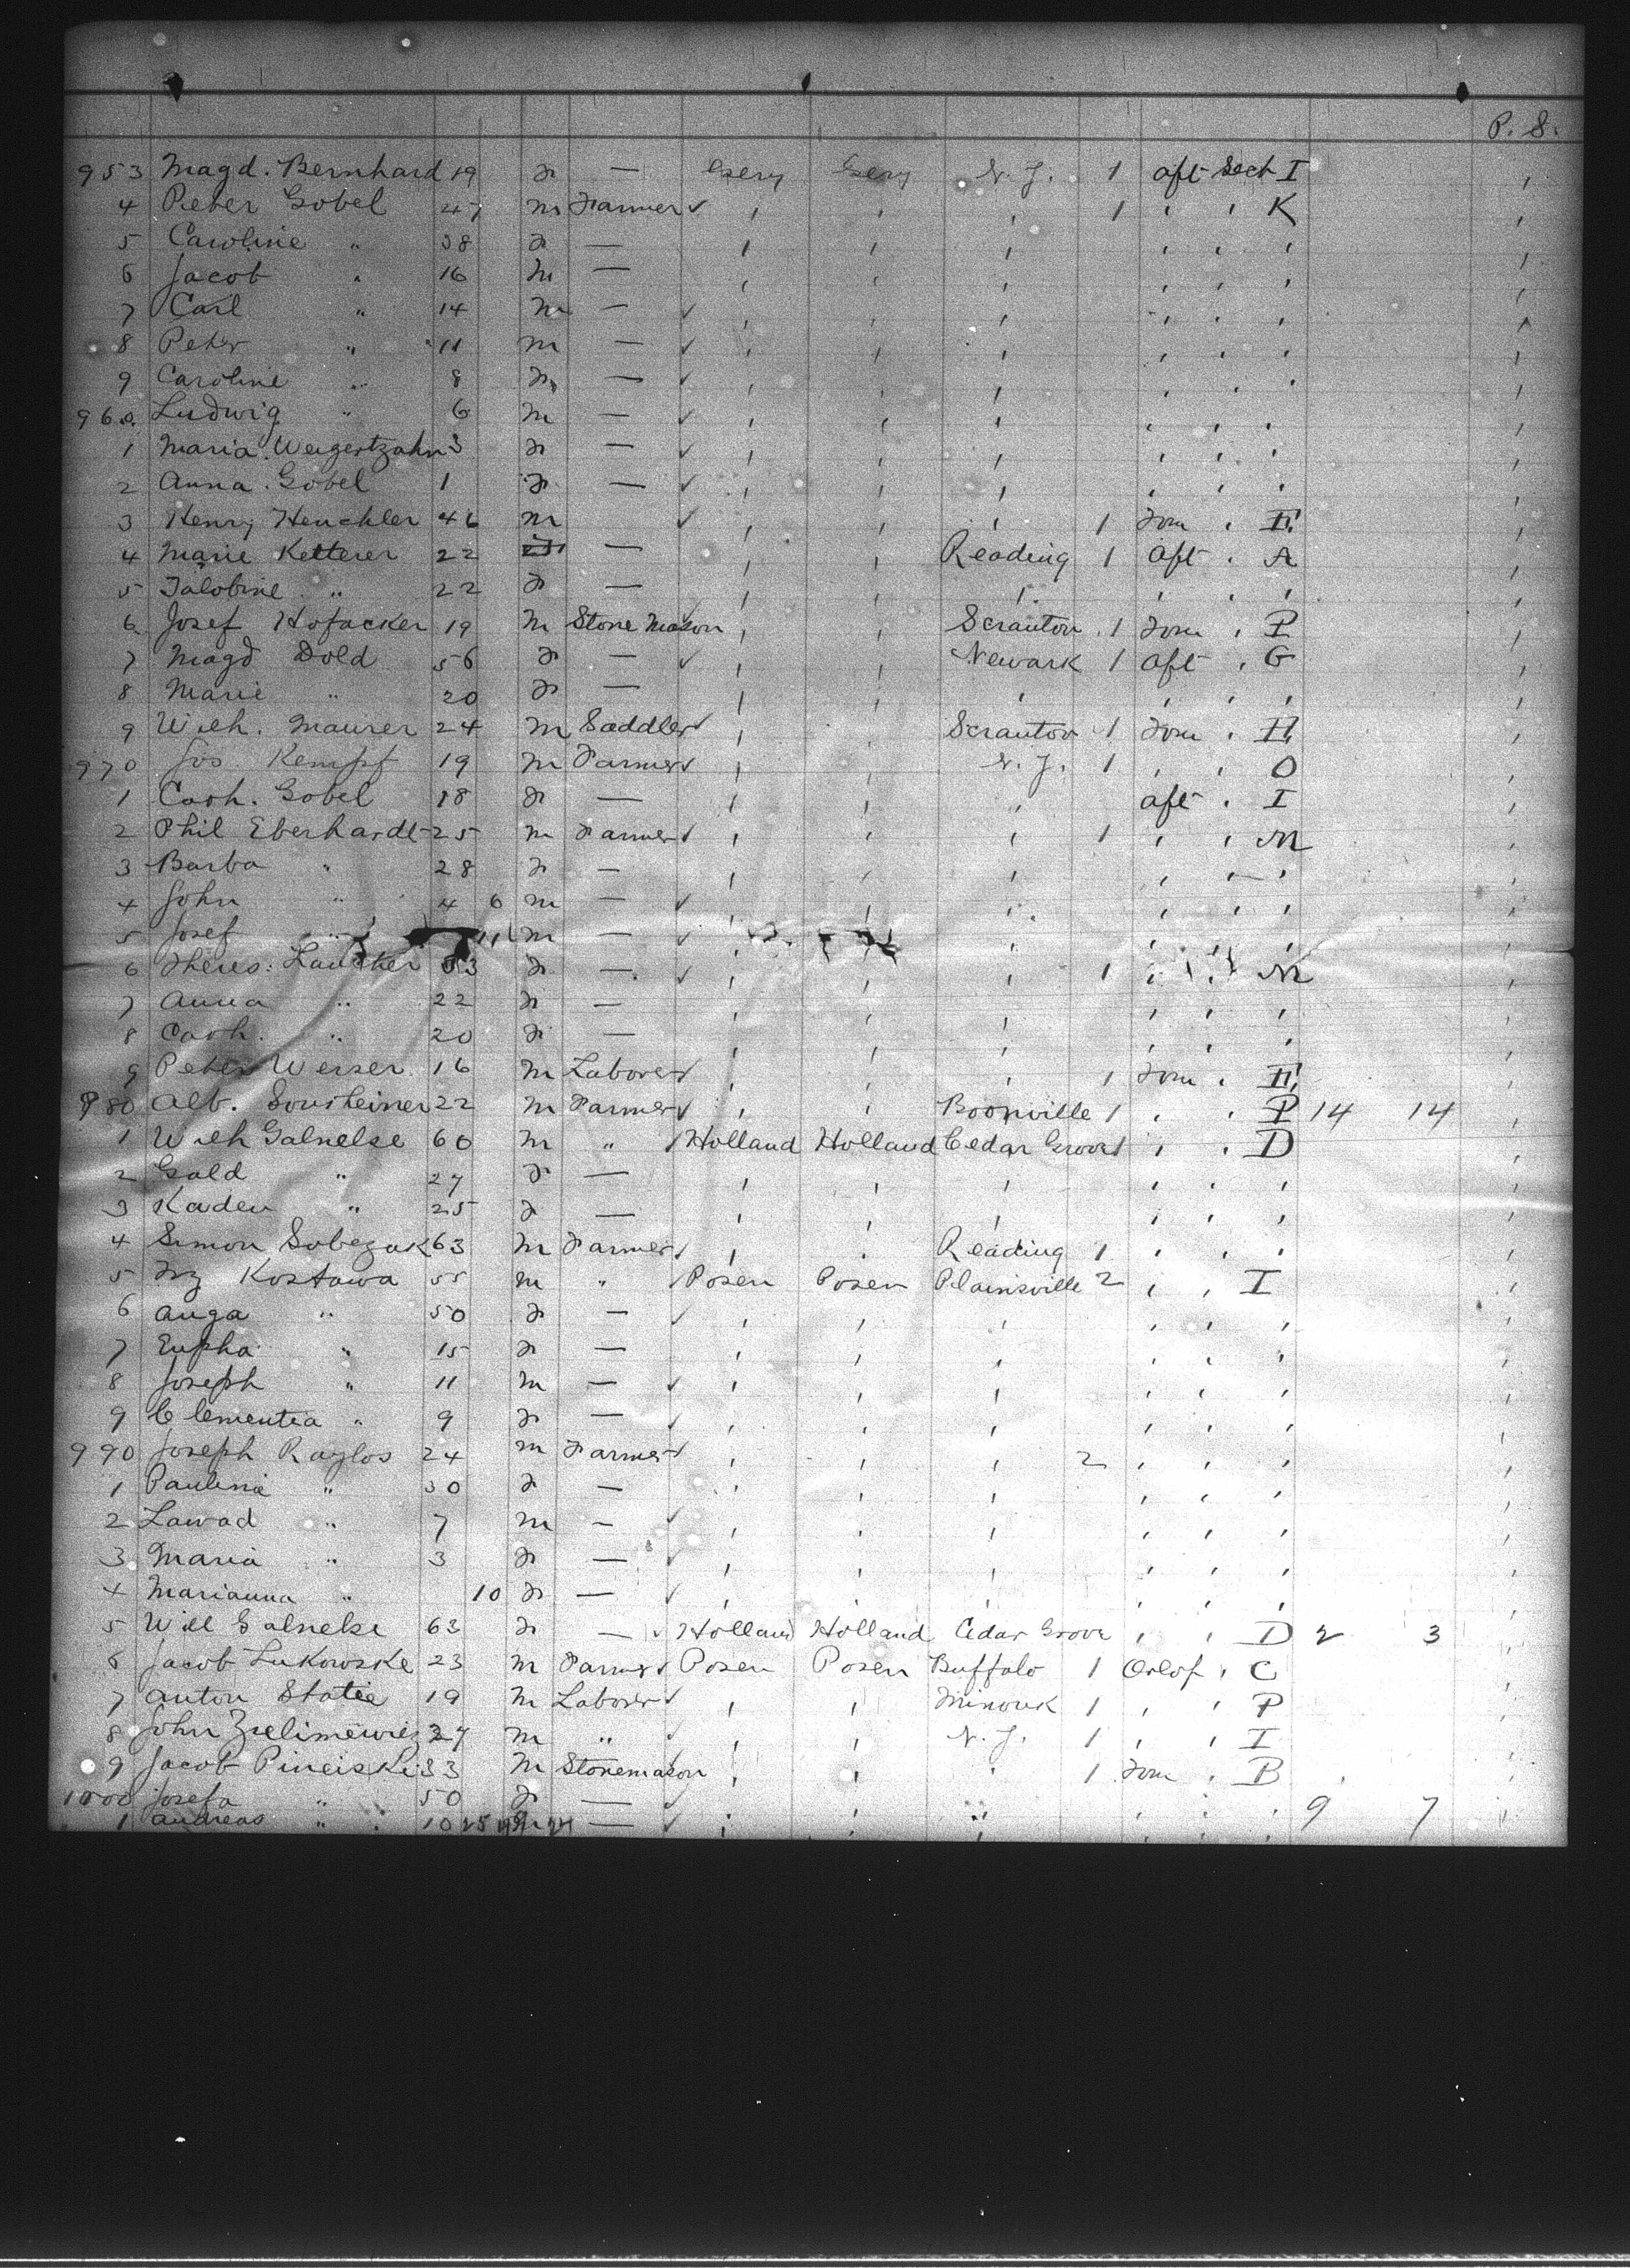 P. S.
953 Magd. Bernhard 19 F — Gery Gery N. Y. 1 aft Sect I
4 Peter Gobel 47 M Farmer ✓ 1 K
5 Caroline " 38 F —
6 Jacob " 16 M —
7 Carl " 14 M — ✓
8 Peter " 11 M — ✓
9 Caroline " 8 F — ✓
960 Ludwig " 6 M — ✓
1 Maria Weigertzahn 3 F — ✓
2 Anna Gobel 1 F — ✓
3 Henry Heuchler 46 M ✓ 1 E
4 Marie Ketterer 22 — Reading 1 aft A
5 " 22 F —
6 Josef Hofacker 19 M Stone Mason Scranton 1 P
7 Magd Dold 56 F — ✓ Newark 1 aft G
8 Marie " 20 F —
9 Wilh. Maurer 24 M Saddler ✓ Scranton 1 H
970 Jos. Kempf 19 M Farmer ✓ N. Y. 1 O
1 Cath. Gobel 18 F — aft I
2 Phil Eberhardt 25 M Farmer ✓ 1 M
3 Barba " 28 F —
4 John " 4 6 M — ✓
5 Josef " 11 M — ✓
6 Theres: 53 F — ✓ 1 M
7 Anna " 22 F —
8 Cath. " 20 F —
9 Peter Weiser 16 M Laborer ✓ 1 E
980 Alb. Sonsheiner 22 M Farmer ✓ Boonville 1 P 14 14
1 Wilh Galnelse 60 M " ✓ Holland Holland Cedar Grove 1 D
2 Gald " 27 F —
3 Kaden " 25 F —
4 Simon Sobezak 63 M Farmer ✓ Reading 1
5 Kostawa 55 M " ✓ Posen Posen Plainsville 2 I
6 Auga " 50 F — ✓
7 Eupha " 15 F —
8 Joseph " 11 M — ✓
9 Clementia " 9 F — ✓
990 Joseph Raylos 24 M Farmer ✓ 2
1 Paulina " 30 F —
2 Lawad " 7 M — ✓
3 Maria " 3 F — ✓
4 Marianna " 10 F — ✓
5 Will Galnelse 63 F — ✓ Holland Holland Cedar Grove D 2 3
6 Jacob Lukowske 23 M Farmer ✓ Posen Posen Buffalo 1 Orlof C
7 Anton Statie 19 M Laborer ✓ Minouk 1 P
8 John 27 M " ✓ N. Y. 1 I
9 Jacob Pineiski 33 M Stonemason 1 B
1000 Josefa " 50 F — 9 7
1 Andreas " 10 M — ✓